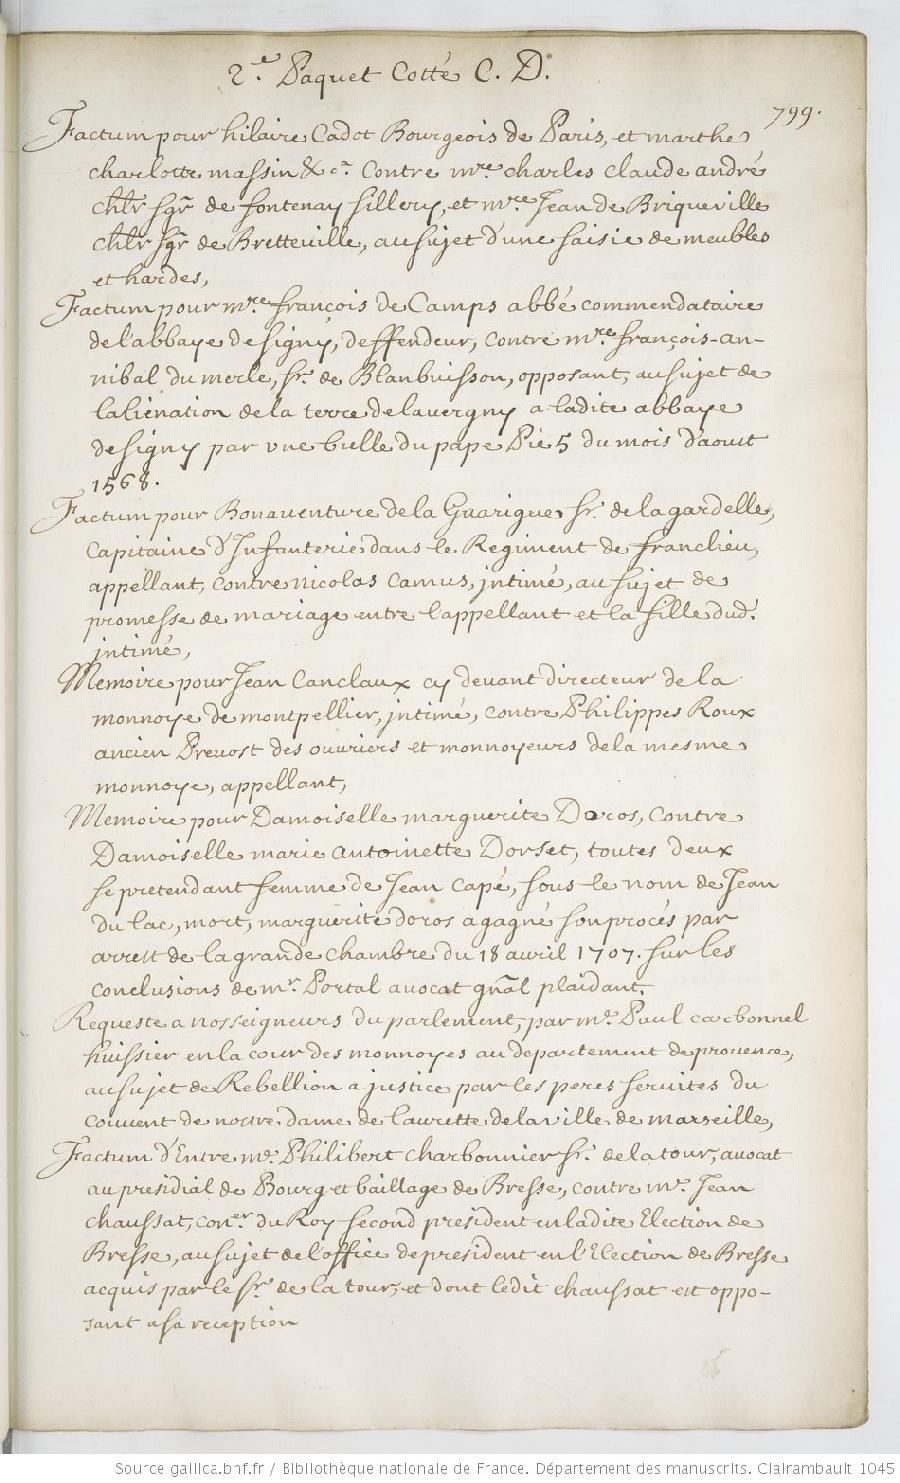 2.e Paquet Cotté C. D.
799.
Factum pour hilaire Cadot Bourgeois de Paris, et marthe
charlotte massin & c.a Contre mre. charles claude andré
chlr sgr de fontenay sillery, et mre. Jean de Briqueville
chlr sgr de Bretteville, au sujet d'une saisie de meubles
et hardes,
Factum pour mre. françois de Camps abbé commendataire
de l'abbaye de signy, deffendeur, contre mre. françois-an-
nibal du merle, sr. de Blanbuisson, opposant, au sujet de
l'aliénation de la terre de lavergny a ladite abbaye
de signy par vne bulle du pape Pie 5 du mois d'aoust
1568.
Factum pour Bonauenture de la Guarigue sr. de la gardelle,
Capitaine d'Infanterie dans le Regiment de franclieu,
appellant, contre nicolas Camus, intimé, au sujet de
promesse de mariage entre l'appellant et la fille dud.
intimé,
Memoire pour Jean Canclaux cy deuant directeur de la
monnoye de montpellier, intimé, contre Philippes Roux
ancien Preuost des ouuriers et monnoyeurs de la mesme
monnoye, appellant,
Memoire pour Damoiselle marguerite Doros, Contre
Damoiselle marie antoinette Dorset, toutes deux
se pretendant femme de Jean Capé, sous le nom de Jean
du lac, mort, marguerite doros a gagné son procés par
arrest de la grande chambre du 18 auril 1707. sur les
conclusions de mr. Portal auocat gnãl plaidant.
Requeste a nosseigneurs du parlement, par me. Paul carbonnel
huissier en la cour des monnoyes au departement de prouence,
au sujet de Rebellion a justice par les peres seruites du
couuent de nostre dame de laurette de la ville de marseille,
Factum d'Entre me. Philibert charbonnier sr. de la tour, auocat
au presidial de Bourg et baillage de Bresse, contre mr. Jean
chaussat, coner. du Roy second president en ladite Election de
Bresse, au sujet de l'office de president en l'Election de Bresse
acquis par le sr. de la tour, et dont ledit chaussat est oppo-
sant a sa reception
Source gallica.bnf.fr / Bibliothèque nationale de France. Département des manuscrits. Clairambault 1045